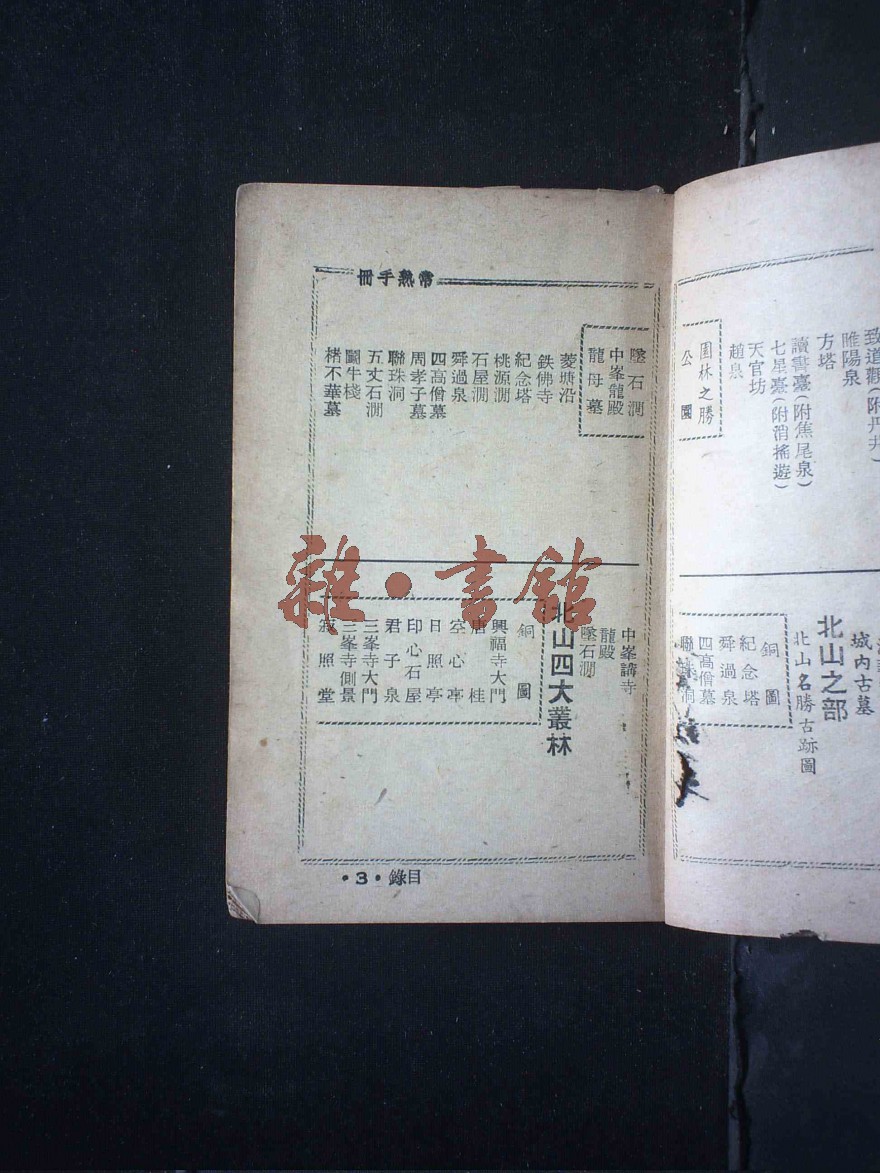 致道觀(附丹井)
雎陽泉
方塔
讀書臺(附焦尾泉)
七星臺(附消搖遊)
天官坊
趙泉
園林之勝
公園
城內古墓
北山之部
北山名勝古跡圖
銅圖
紀念塔
舜過泉
四高僧墓
常熟手冊
墜石澗
中峯龍殿
龍母墓
菱塘沿
鉄佛寺
紀念塔
桃源澗
石屋澗
舜過泉
四高僧墓
周孝子墓
聯珠洞
五丈石澗
鬭牛棧
楮不華墓
中峯講寺
龍殿
墜石澗
北山四大叢林
銅圖
興福寺大門
唐桂
空心亭
日照亭
印心石屋
君子泉
三峯寺大門
三峯寺側景
寂照堂
目錄·3·
雜·書館